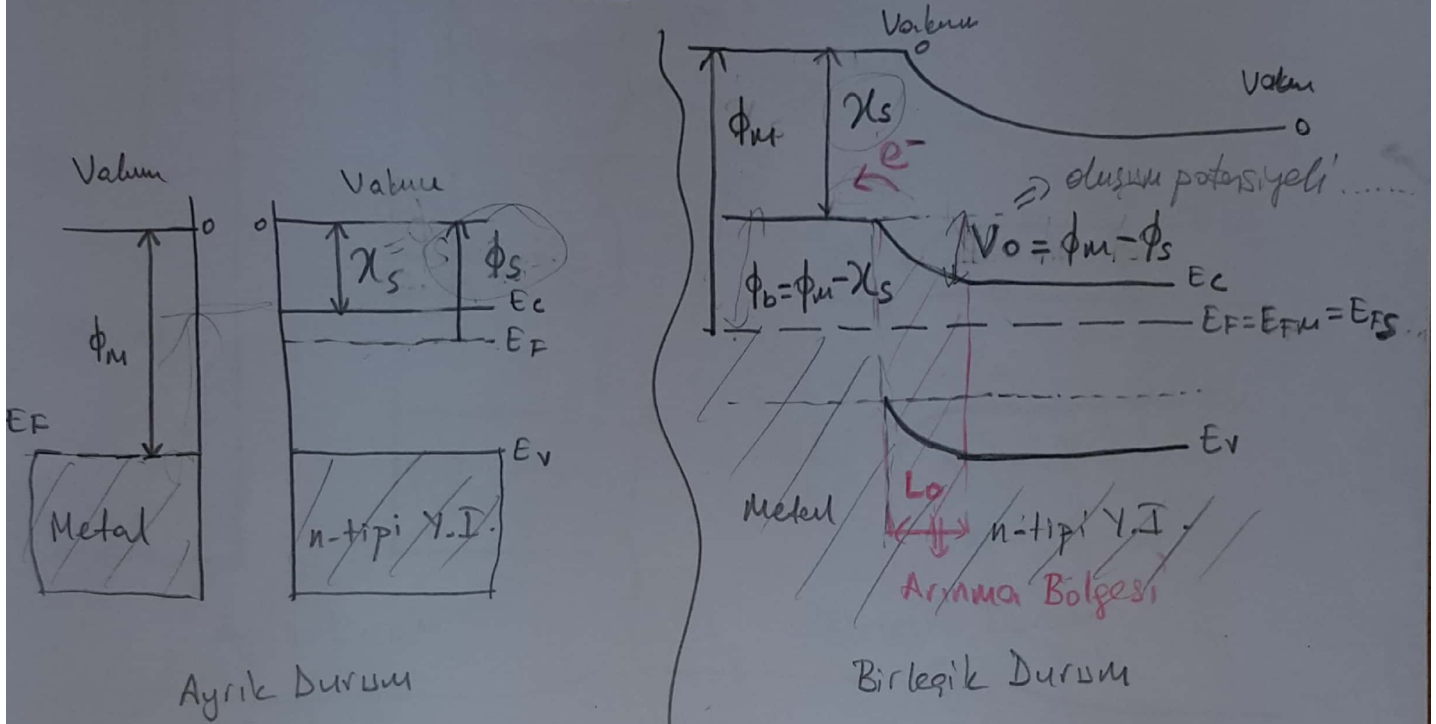 Vakum
Vakum
0
0
χs
ϕs
Ec
EF
ϕM
EF
Ev
Metal
n-tipi Y.I.
Ayrık Durum
Vakum
0
Vakum
0
ϕM
χs
e⁻
⇒ oluşum potansiyeli ......
V0 = ϕM - ϕs
ϕb = ϕM - χs
Ec
EF = EFM = EFS
Ev
L0
Metal
n-tipi Y.I.
Arınma Bölgesi
Birleşik Durum